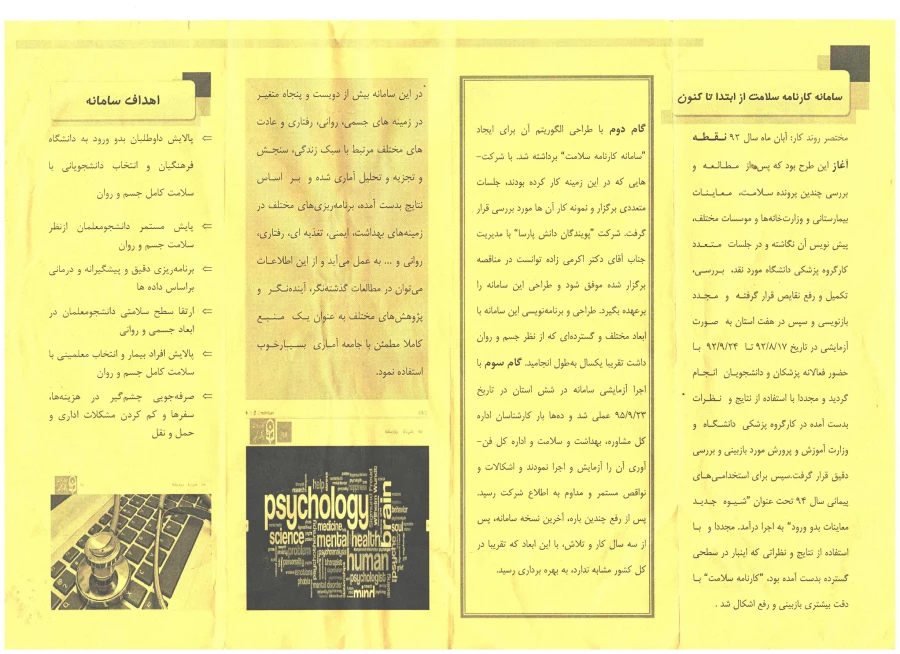 سامانه کارنامه سلامت از ابتدا تا کنون
مختصر روند کار: آبان ماه سال ۹۲ نـقـطـه
آغاز این طرح بود که پس از مـطـالـعـه و
بررسی چندین پرونده سـلامـت، مـعـایـنـات
بیمارستانی و وزارت‌خانه‌ها و موسسات مختلف،
پیش نویس آن نگاشته و در جلسات متـعـدد
کارگروه پزشکی دانشگاه مورد نقد، بررسـی،
تکمیل و رفع نقایص قرار گرفتـه و مـجـدد
بازنویسی و سپس در هفت استان به صـورت
آزمایشی در تاریخ ۹۲/۸/۱۷ تـا ۹۲/۹/۲۴ بـا
حضور فعالانه پزشکان و دانشجویـان انـجـام
گردید و مجددا با استفاده از نتایج و نـظـرات
بدست آمده در کارگروه پزشکی دانشگـاه و
وزارت آموزش و پرورش مورد بازبینی و بررسی
دقیق قرار گرفت.سپس برای استخدامـی‌هـای
پیمانی سال ۹۴ تحت عنوان "شـیـوه جـدیـد
معاینات بدو ورود" به اجرا درآمد. مجددا و بـا
استفاده از نتایج و نظراتی که اینبار در سطحی
گسترده بدست آمده بود، "کارنامه سلامت" بـا
دقت بیشتری بازبینی و رفع اشکال شد .
گام دوم با طراحی الگوریتم آن برای ایجاد
"سامانه کارنامه سلامت" برداشته شد. با شرکت-
هایی که در این زمینه کار کرده بودند، جلسات
متعددی برگزار و نمونه کار آن ها مورد بررسی قرار
گرفت. شرکت "پویندگان دانش پارسا" با مدیریت
جناب آقای دکتر اکرمی زاده توانست در مناقصه
برگزار شده موفق شود و طراحی این سامانه را
برعهده بگیرد. طراحی و برنامه‌نویسی این سامانه با
ابعاد مختلف و گسترده‌ای که از نظر جسم و روان
داشت تقریبا یکسال به‌طول انجامید. گام سوم با
اجرا آزمایشی سامانه در شش استان در تاریخ
۹۵/۹/۲۳ عملی شد و ده‌ها بار کارشناسان اداره
کل مشاوره، بهداشت و سلامت و اداره کل فن-
آوری آن را آزمایش و اجرا نمودند و اشکالات و
نواقص مستمر و مداوم به اطلاع شرکت رسید.
پس از رفع چندین باره، آخرین نسخه سامانه، پس
از سه سال کار و تلاش، با این ابعاد که تقریبا در
کل کشور مشابه ندارد، به بهره برداری رسید.
در این سامانه بیش از دویست و پنجاه متغیـر
در زمینه های جسمی، روانی، رفتاری و عادت
های مختلف مرتبط با سبک زندگی، سنجـش
و تجزیه و تحلیل آماری شده و بـر اسـاس
نتایج بدست آمده، برنامه‌ریزی‌های مختلف در
زمینه‌های بهداشت، ایمنی، تغذیه ای، رفتاری،
روانی و ... به عمل می‌آید و از این اطلاعـات
می‌توان در مطالعات گذشته‌نگر، آینده‌نـگـر و
پژوهش‌های مختلف به عنوان یـک مـنـبـع
کاملا مطمئن با جامعه آمـاری بسـیـارخـوب
استفاده نمود.
psychology
brain
help
medicine
science
mental health
soul
behavior
problem
human
personality
therapist
psychologist
emotions
phobia
mental disorder
mind
اهداف سامانه
پالایش داوطلبان بدو ورود به دانشگاه
فرهنگیان و انتخاب دانشجویانی با
سلامت کامل جسم و روان
پایش مستمر دانشجومعلمان ازنظر
سلامت جسم و روان
برنامه‌ریزی دقیق و پیشگیرانه و درمانی
براساس داده ها
ارتقا سطح سلامتی دانشجومعلمان در
ابعاد جسمی و روانی
پالایش افراد بیمار و انتخاب معلمینی با
سلامت کامل جسم و روان
صرفه‌جویی چشم‌گیر در هزینه‌ها،
سفرها و کم کردن مشکلات اداری و
حمل و نقل